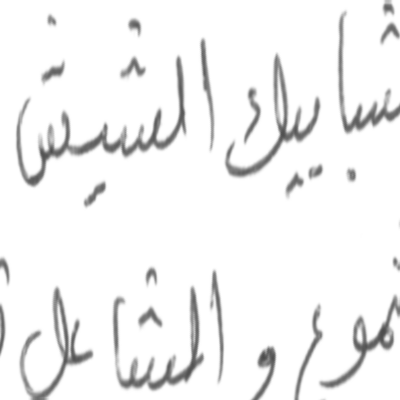 شبابيك الشيش
موع و المشاعل